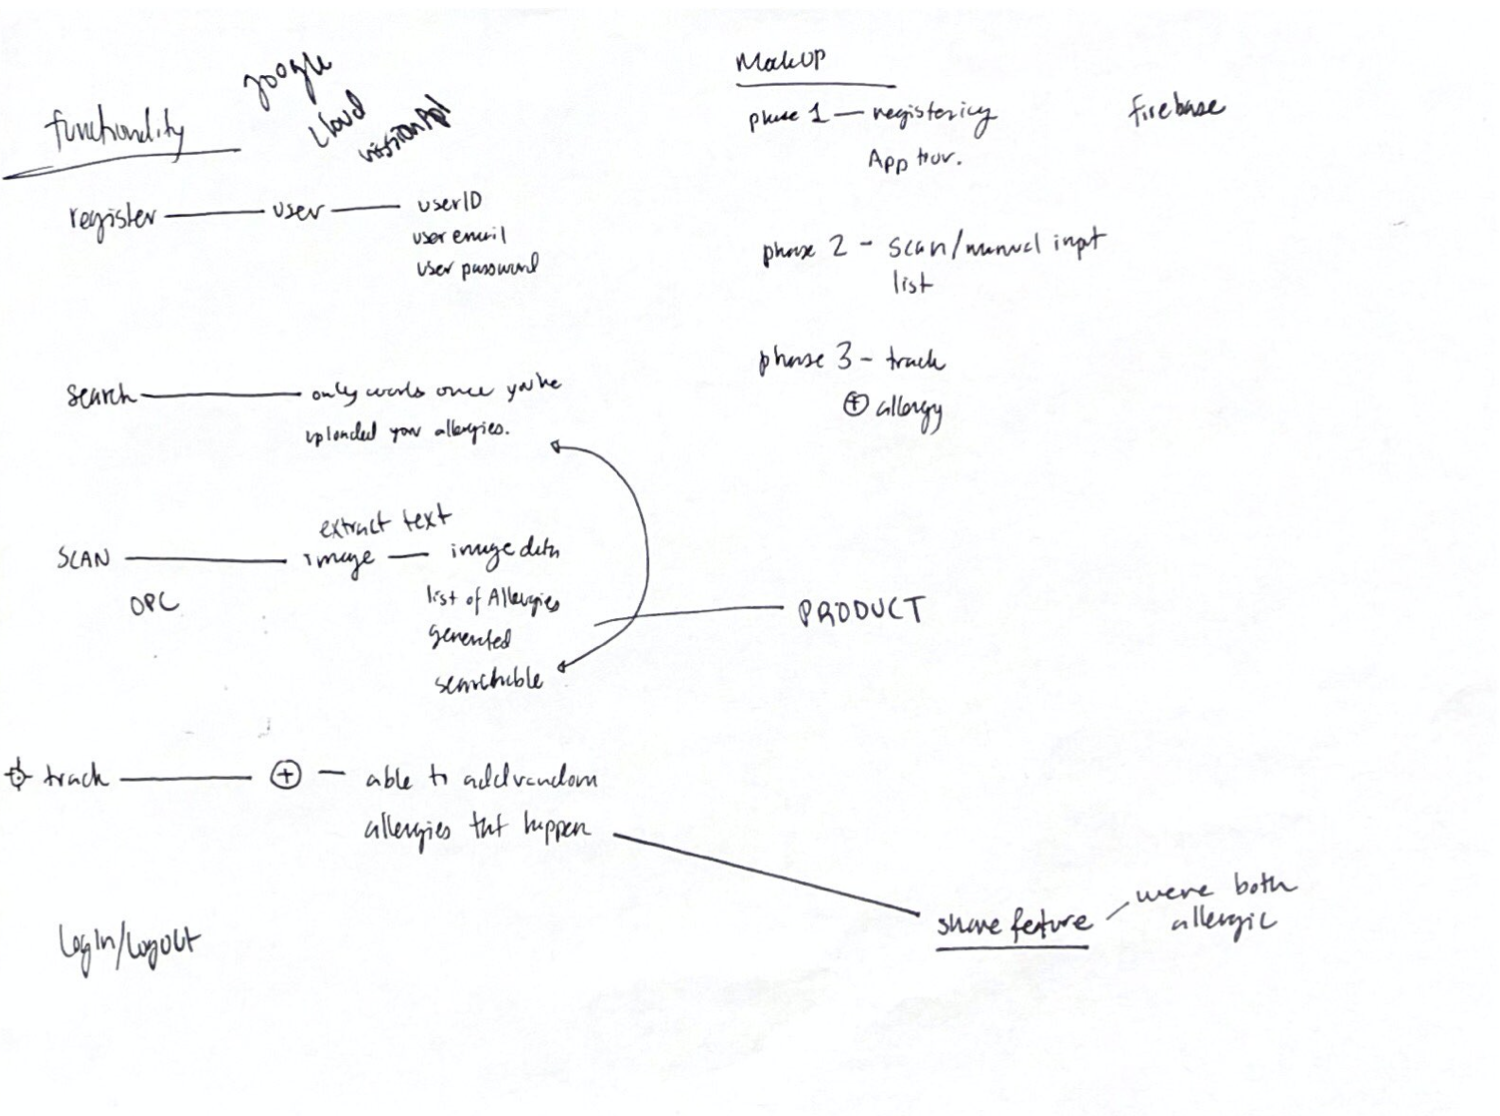 functionality
google
cloud
vission Api
register user userID
user email
user password
search only works once you've
uploaded your allergies.
extract text
SCAN image image data
OPC
list of Allergies
generated
searchable
PRODUCT
track + able to add random
allergies tht happen
share feature were both
allergic
login/logout
MockUP
phase 1 — registering
App tour.
firebase
phase 2 - scan/manual inpt
list
phase 3 - track
+ allergy